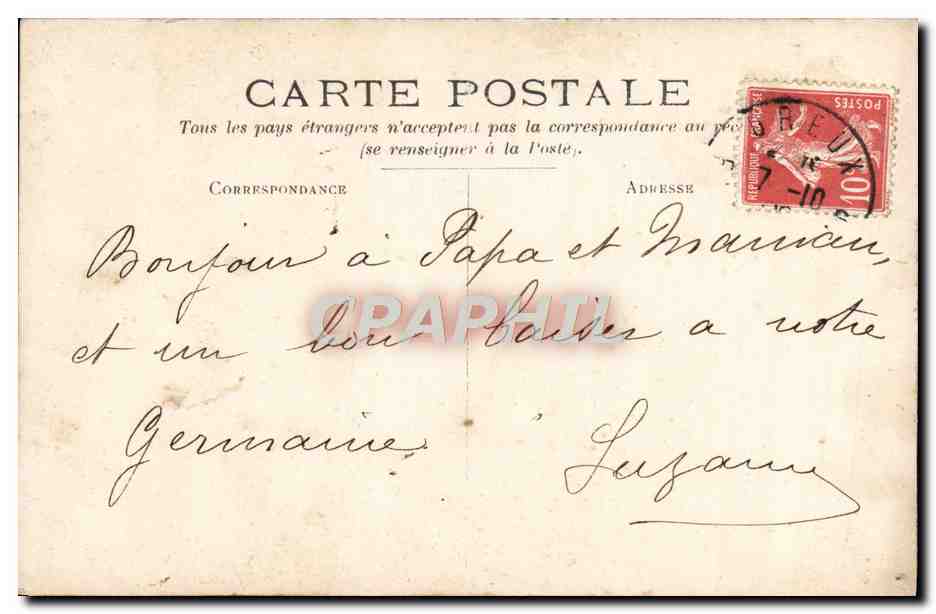 CARTE POSTALE
Tous les pays étrangers n'acceptent pas la correspondance au
(se renseigner à la Poste).
CORRESPONDANCE
ADRESSE
REPUBLIQUE FRANÇAISE
POSTES
10
DREUX
7 -10
Bonjour à Papa et Maman,
et un bon baiser a notre
Germaine
Suzanne
CPAPHIL